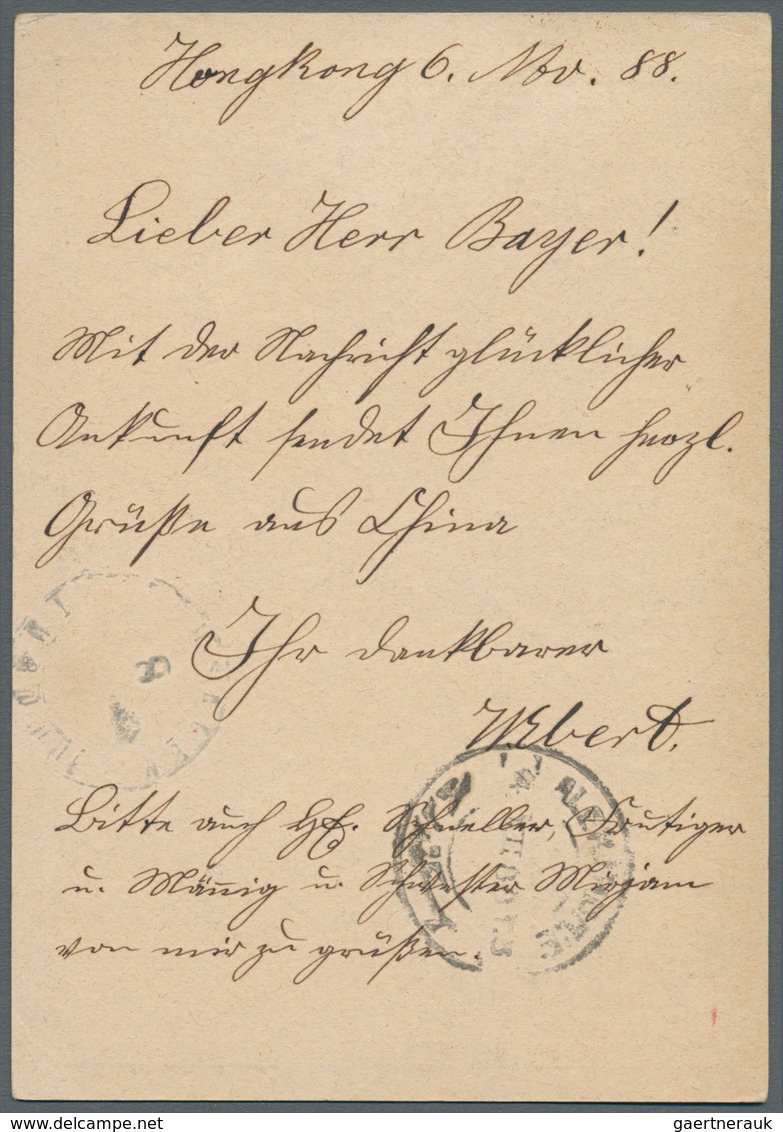 Hongkong 6. Nov. 88.
Lieber Herr Bayer!
Mit der Nachricht glücklicher
Ankunft sendet Ihnen herzl.
Grüße aus China
Ihr dankbarer
W. Ebert.
Bitte auch HH. Schneller, Frutiger
u. Männig u. Schwester Mirjam
von mir zu grüßen.
delcampe.net
gaertnerauk